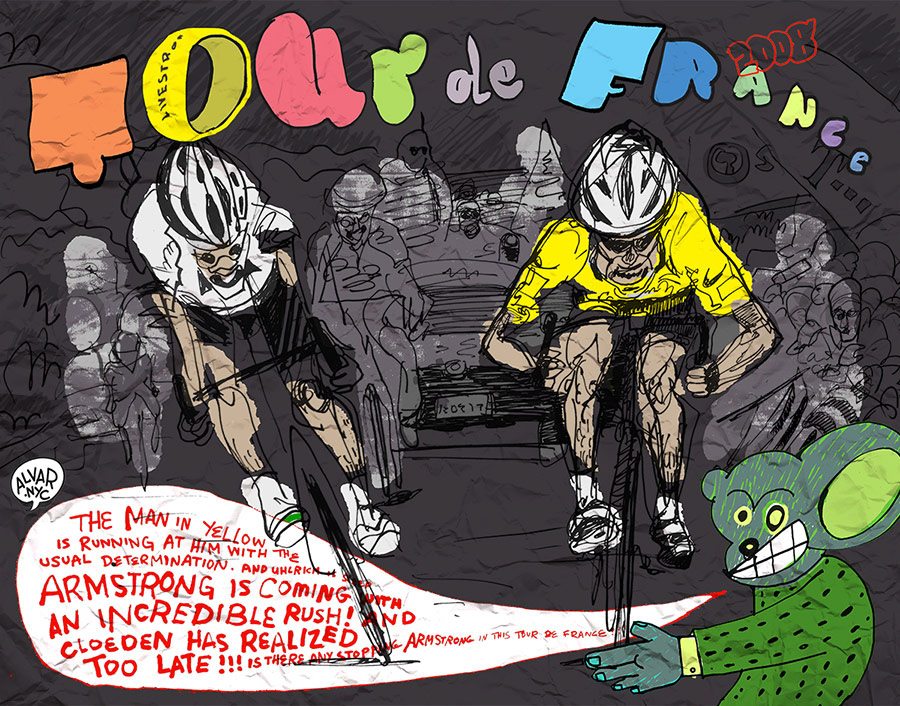 TOUR de FRANCE
2008
IVESTRO
ALVAR
.NYC
THE MAN IN YELLOW
IS RUNNING AT HIM WITH THE
USUAL DETERMINATION. AND UHLRICH
ARMSTRONG IS COMING WITH
AN INCREDIBLE RUSH! AND
CLOEDEN HAS REALIZED
TOO LATE!!! IS THERE ANY STOPPING ARMSTRONG IN THIS TOUR DE FRANCE